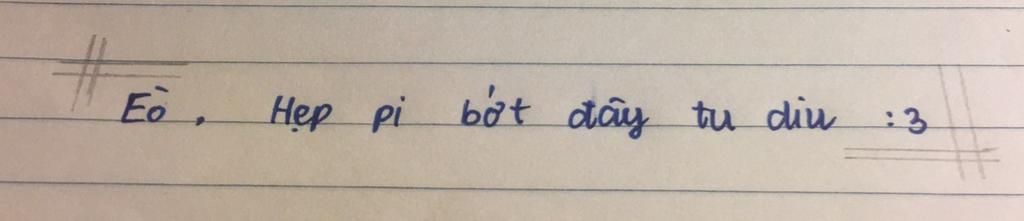 Eò, Hẹp pi bớt đây tu diu :3